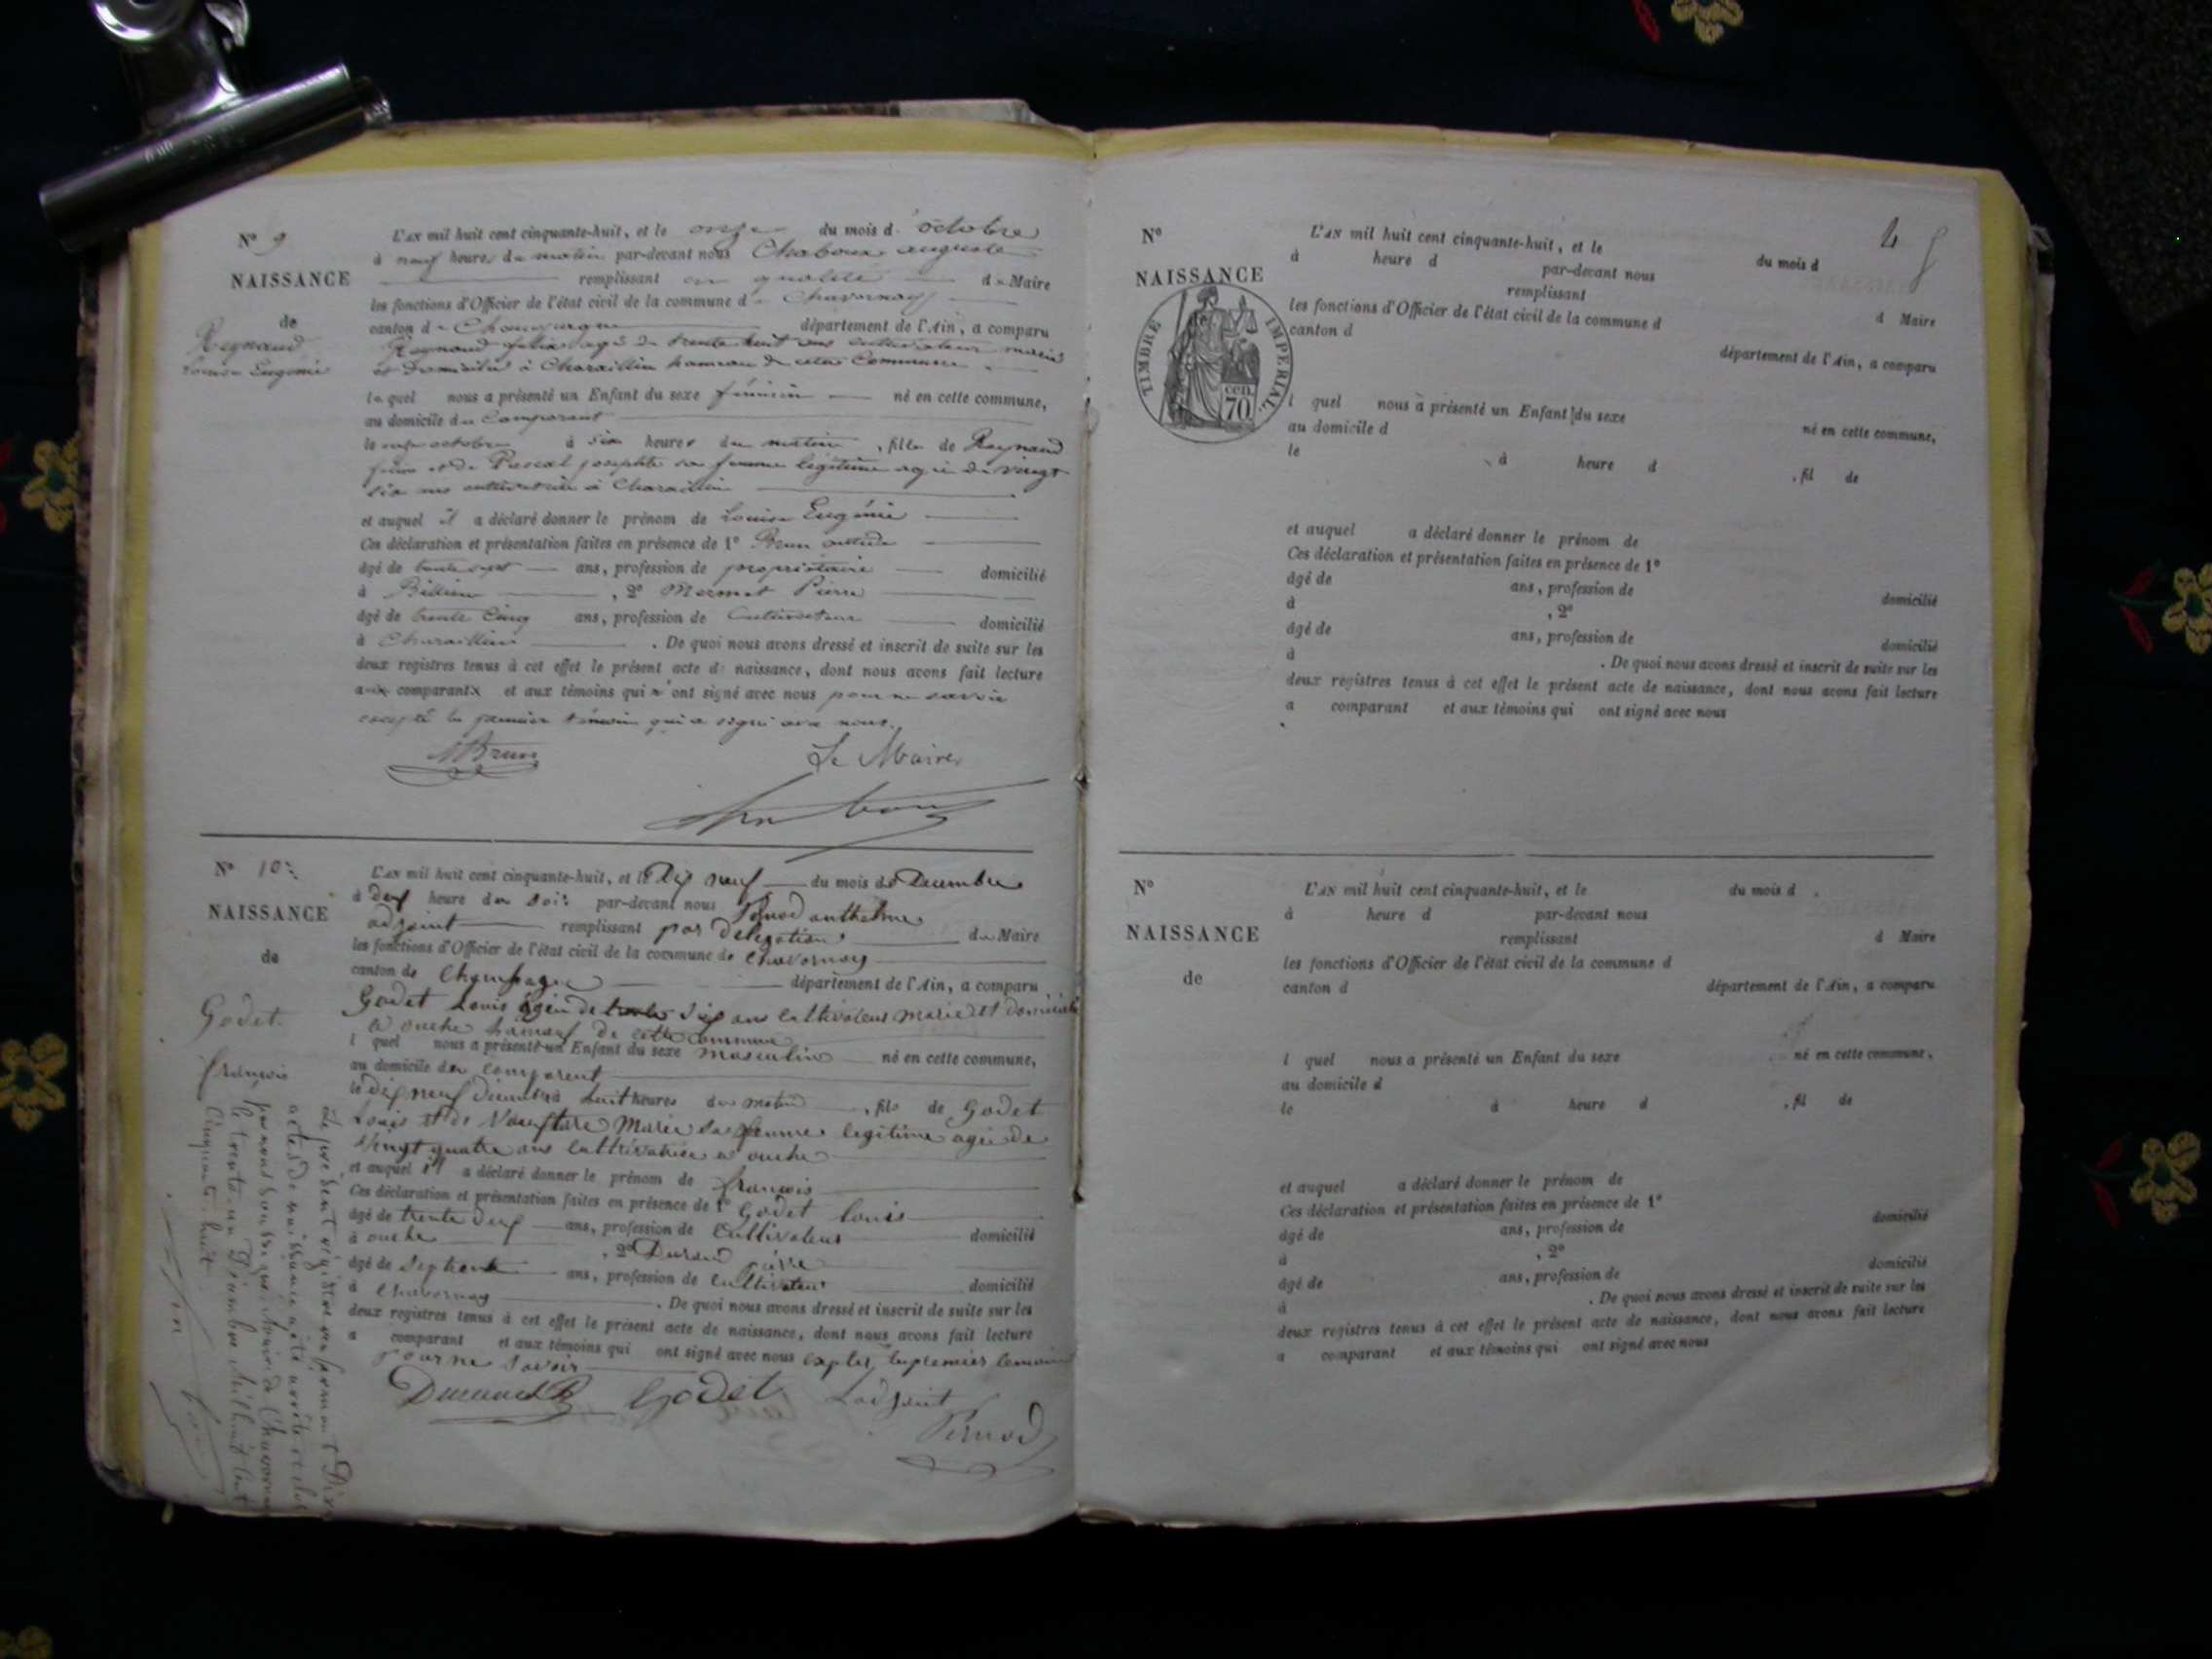 N° 9
NAISSANCE
de
Reynaud
Louise Eugénie
L'AN mil huit cent cinquante-huit, et le onze du mois d'octobre
à neuf heures du matin par-devant nous Chaboux auguste
remplissant en qualité de Maire
les fonctions d'Officier de l'état civil de la commune de Chavornay
canton de Champagne département de l'Ain, a comparu
Reynaud félix agé de trente huit ans cultivateur marié
et domicilié à Charaillin hameau de cette Commune
lequel nous a présenté un Enfant du sexe féminin né en cette commune,
au domicile du Comparant
le onze octobre à six heures du matin, fille de Reynaud
félix et de Pascal josephte sa femme légitime agée de vingt
six ans cultivatrice à Charaillin
et auquel il a déclaré donner le prénom de Louise Eugénie
Ces déclaration et présentation faites en présence de 1° Brun
âgé de trente sept ans, profession de propriétaire domicilié
à , 2° Mermet Pierre
âgé de trente Cinq ans, profession de Cultivateur domicilié
à Charaillin . De quoi nous avons dressé et inscrit de suite sur les
deux registres tenus à cet effet le présent acte de naissance, dont nous avons fait lecture
aux comparants et aux témoins qui n'ont signé avec nous pour ne savoir
excepté le premier témoin qui a signé avec nous.
ABrun
Le Maire,
N° 10
NAISSANCE
de
Godet
françois
L'AN mil huit cent cinquante-huit, et le Dix neuf du mois de Decembre
à deux heure du soir par-devant nous Pernod anthelme
adjoint remplissant par délégation du Maire
les fonctions d'Officier de l'état civil de la commune de Chavornay
canton de Champagne département de l'Ain, a comparu
Godet Louis agé de trente six ans cultivateur marié et domicilié
a ouche hameau de cette commune
l quel nous a présenté un Enfant du sexe masculin né en cette commune,
au domicile du comparent
le dix neuf Decembre à huit heures du matin, fils de Godet
Louis et de Marie sa femme legitime agée de
vingt quatre ans cultivatrice a ouche
et auquel il a déclaré donner le prénom de françois
Ces déclaration et présentation faites en présence de 1° Godet louis
âgé de trente deux ans, profession de Cultivateur domicilié
à ouche , 2° Durand
âgé de septente ans, profession de cultivateur domicilié
à Chavornay . De quoi nous avons dressé et inscrit de suite sur les
deux registres tenus à cet effet le présent acte de naissance, dont nous avons fait lecture
a comparant et aux témoins qui ont signé avec nous
pour ne savoir
Godet
Ladjoint
Pernod
Le présent régistre renfermant Dix
actes de naissance a été arrêté et clos
par nous soussigné Maire de Chavornay
le trente un Décembre mil huit cent
Cinquante huit
N°
NAISSANCE
TIMBRE IMPÉRIAL
70 cen.
L'AN mil huit cent cinquante-huit, et le du mois d
à heure d par-devant nous
remplissant d Maire
les fonctions d'Officier de l'état civil de la commune d
canton d département de l'Ain, a comparu
l quel nous a présenté un Enfant du sexe né en cette commune,
au domicile d
le à heure d , fil de
et auquel a déclaré donner le prénom de
Ces déclaration et présentation faites en présence de 1°
âgé de ans, profession de domicilié
à , 2°
âgé de ans, profession de domicilié
à . De quoi nous avons dressé et inscrit de suite sur les
deux registres tenus à cet effet le présent acte de naissance, dont nous avons fait lecture
a comparant et aux témoins qui ont signé avec nous
N°
NAISSANCE
de
L'AN mil huit cent cinquante-huit, et le du mois d
à heure d par-devant nous
remplissant d Maire
les fonctions d'Officier de l'état civil de la commune d
canton d département de l'Ain, a comparu
l quel nous a présenté un Enfant du sexe né en cette commune,
au domicile d
le à heure d , fil de
et auquel a déclaré donner le prénom de
Ces déclaration et présentation faites en présence de 1°
âgé de ans, profession de domicilié
à , 2°
âgé de ans, profession de domicilié
à . De quoi nous avons dressé et inscrit de suite sur les
deux registres tenus à cet effet le présent acte de naissance, dont nous avons fait lecture
a comparant et aux témoins qui ont signé avec nous